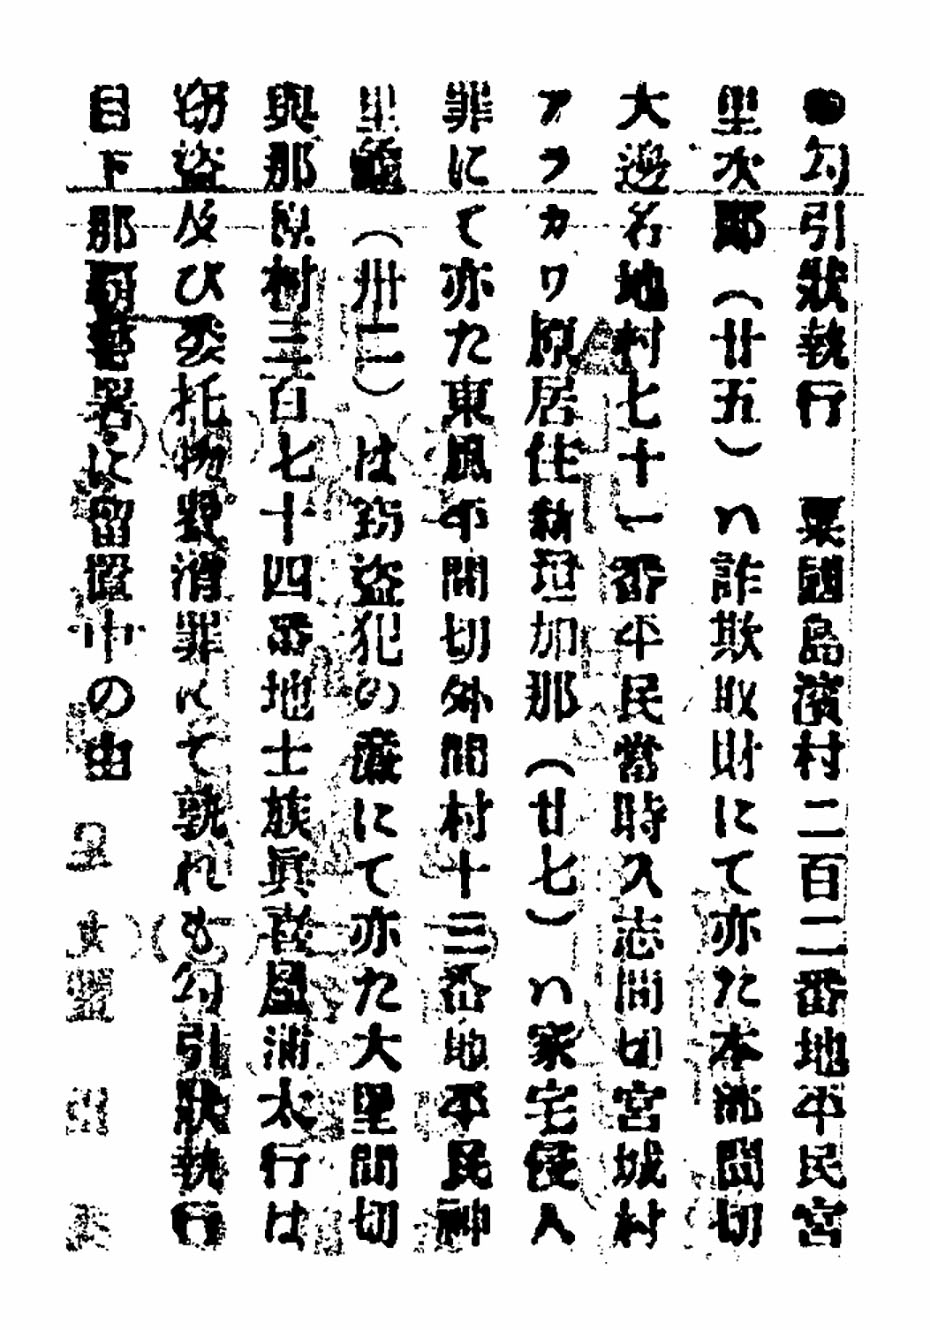 ●勾引狀執行　粟國島濱村二百二番地平民宮
里次郎（廿五）ハ詐欺取財にて亦た本部間切
大邊名地村七十一番平民當時久志間切宮城村
アラカワ原居住新垣加那（廿七）ハ家宅侵入
罪にて亦た東風平間切外間村十三番地平民神
里（卅二）は窃盗犯の廉にて亦た大里間切
與那原村三百七十四番地士族眞喜屋浦太行は
窃盗及び委托物費消罪にて孰れも勾引狀執行
目下那覇警署に留置中の由